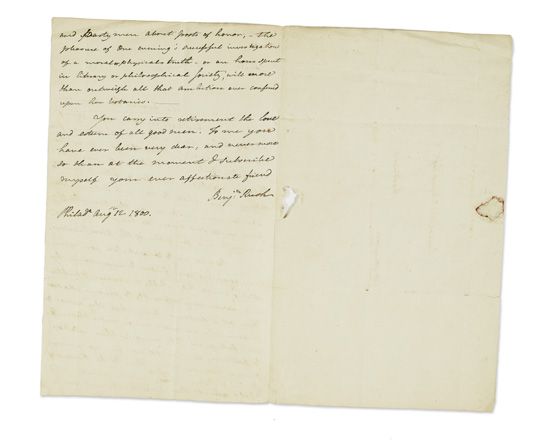 and Party men about posts of honor, – the
pleasure of one evening's successful investigation
of a moral or physical truth – or an hour spent
in literary or philosophical society, will more
than outweigh all that ambition ever conferred
upon her votaries. ———
You carry into retirement the love
and esteem of all good men. To me you
have ever been very dear, and never more
so than at the moment I subscribe
myself your ever affectionate friend
Benjn. Rush
Philada. Augt. 12 1800.